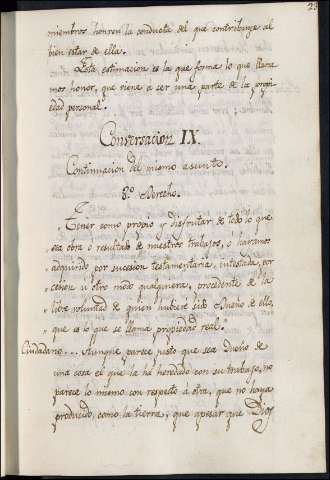 23
miembros honren la conducta del que contribuye al
bien estar de ella.
Esta estimacion es la que forma lo que llama
mos honor, que viene a ser una parte de la propi
edad personal.
Conversacion IX.
Continuacion del mismo asunto.
8.º Derecho.
Tener como propio y disfrutar de todo lo que
sea obra ó resultado de nuestros trabajos, ó hayamos
adquirido por sucesion testamentaria, intestada, por
cesion u otro modo qualquiera, procedente de la
libre voluntad de quien hubiere sido Dueño de ello,
que es lo que se llama propiedad real.
Ciudadano... Aunque parece justo que sea Dueño de
una cosa el que la ha heredado con su trabajo, no
parece lo mismo con respecto á otra, que no haya
producido, como la tierra, que apesar que Dios